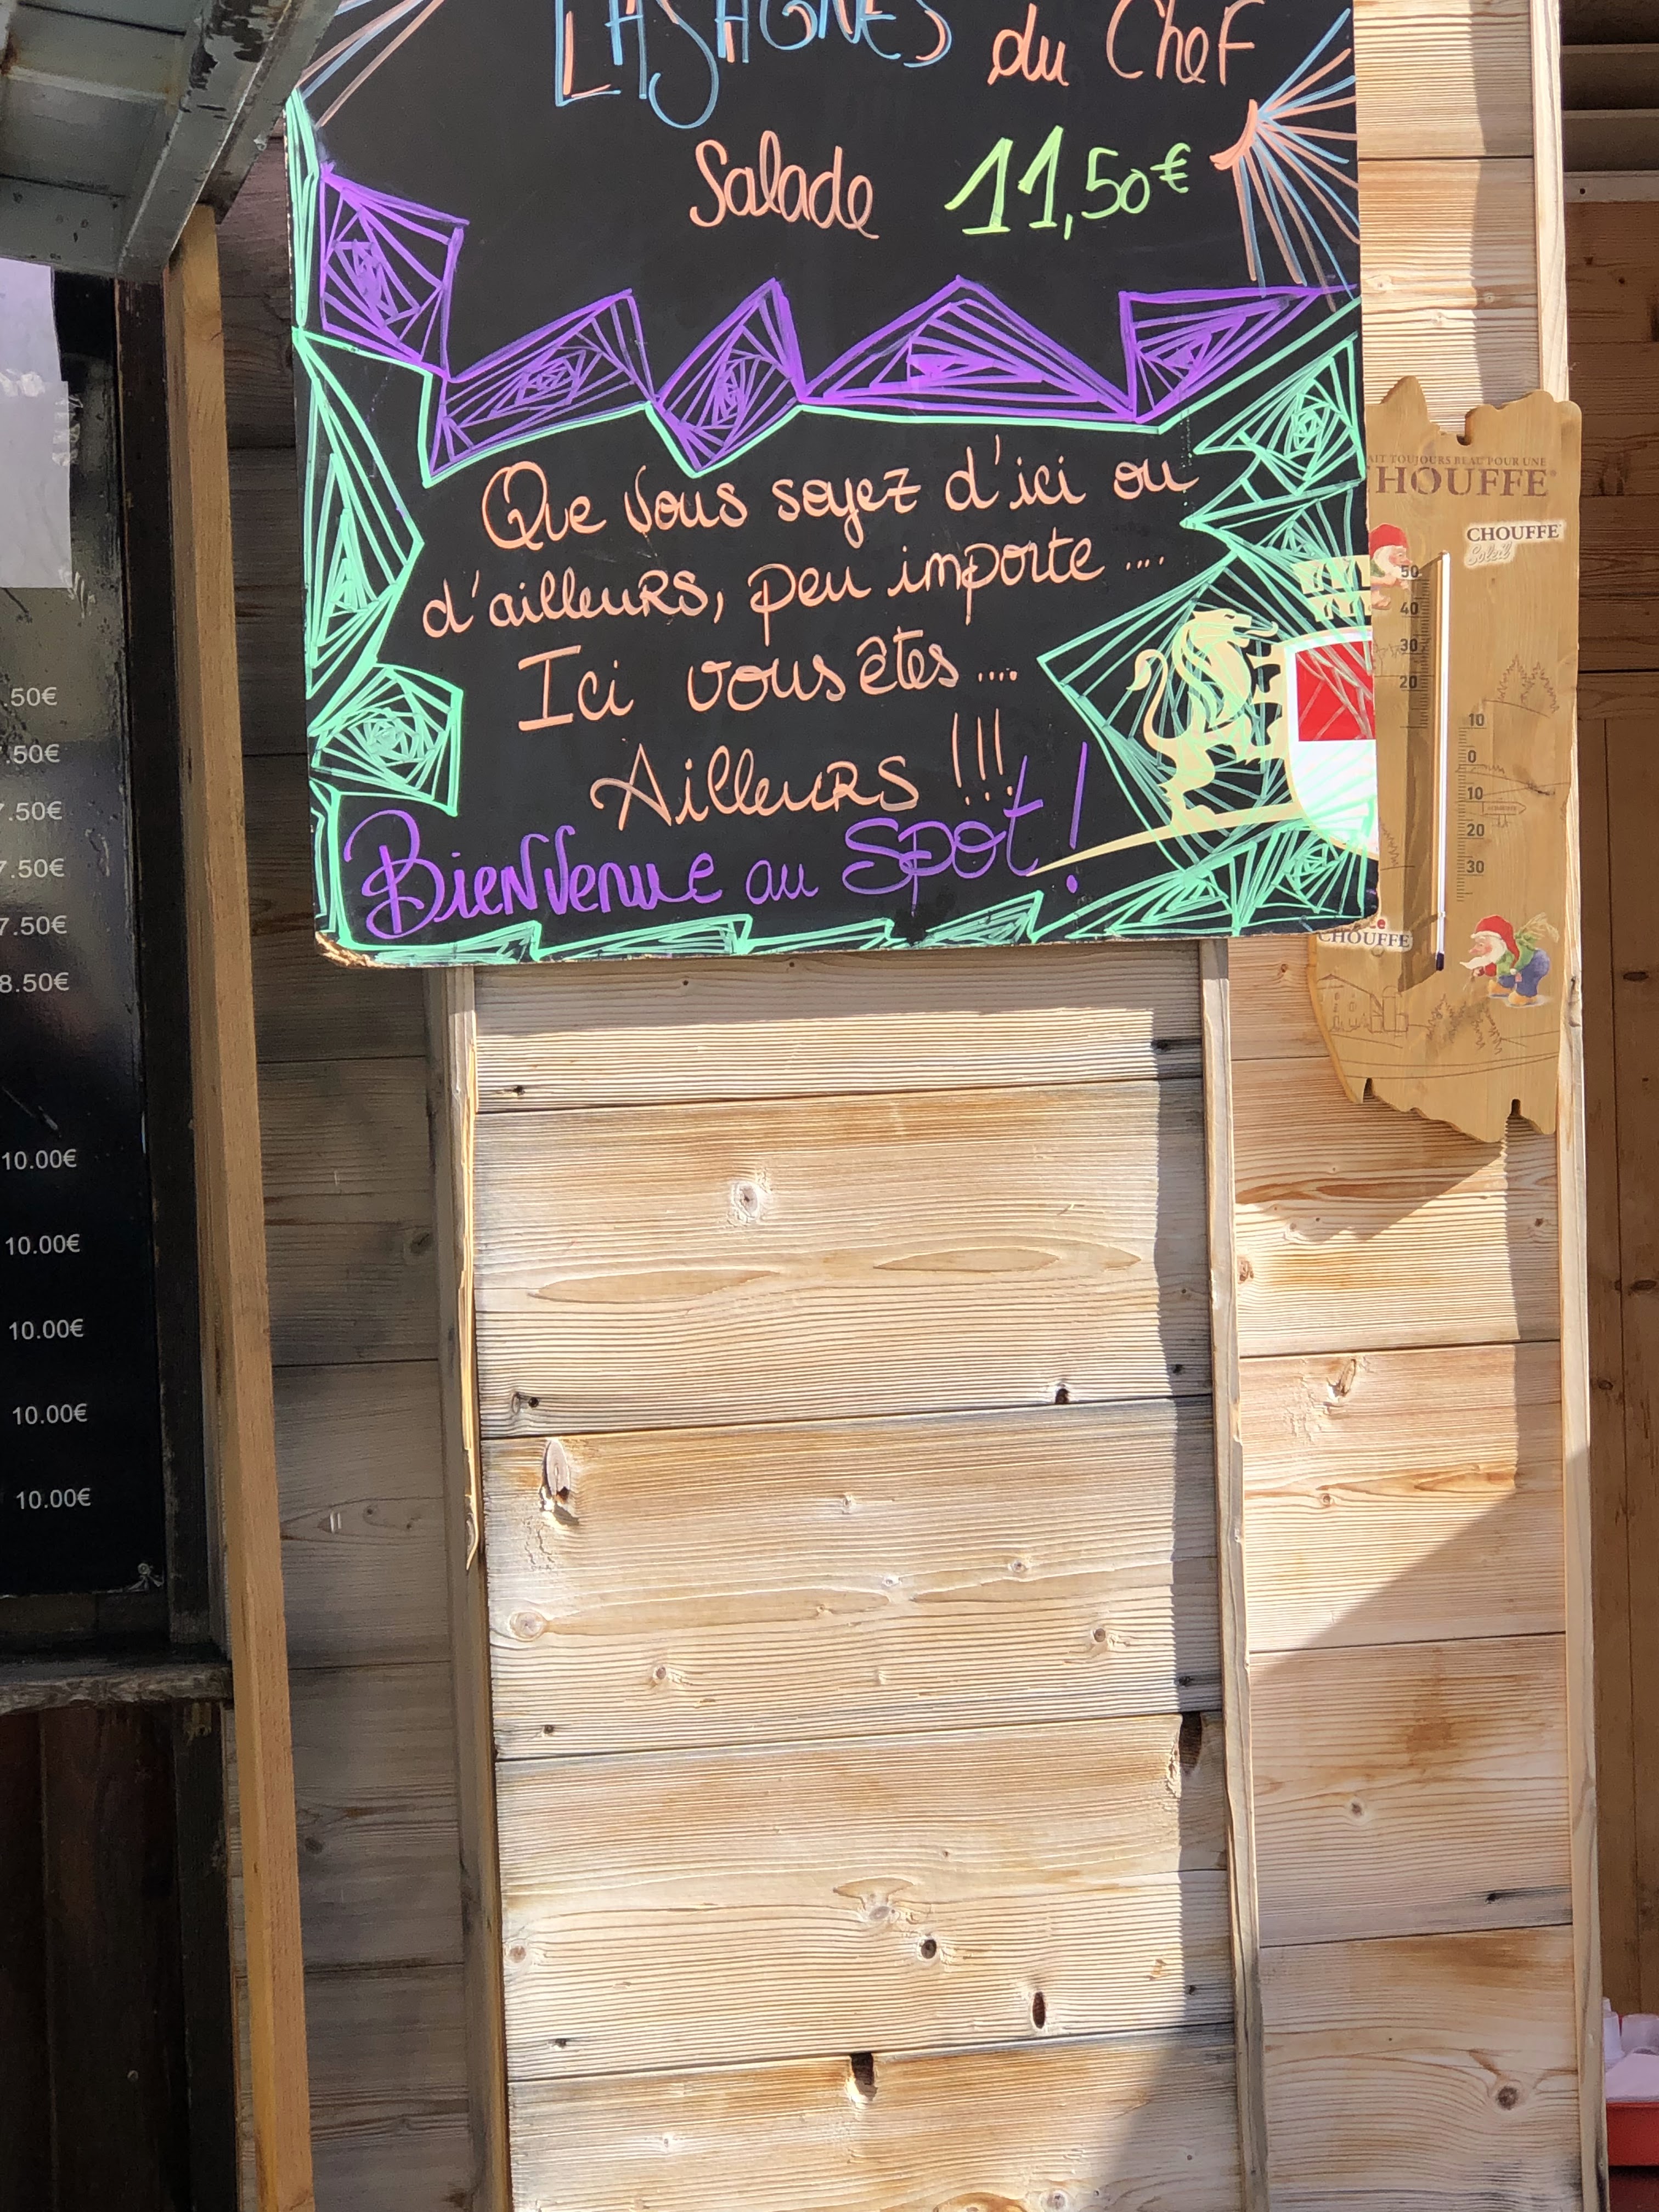 LASAGNES du Chef
Salade 11,50€
Que vous soyez d'ici ou
d'ailleurs, peu importe ....
Ici vous êtes ....
Ailleurs !!!
Bienvenue au SPOT !
AIT TOUJOURS BEAU POUR UNE
HOUFFE
CHOUFFE
Soleil
50
40
30
20
10
0
10
20
30
CHOUFFE
.50€
.50€
7.50€
7.50€
7.50€
8.50€
10.00€
10.00€
10.00€
10.00€
10.00€